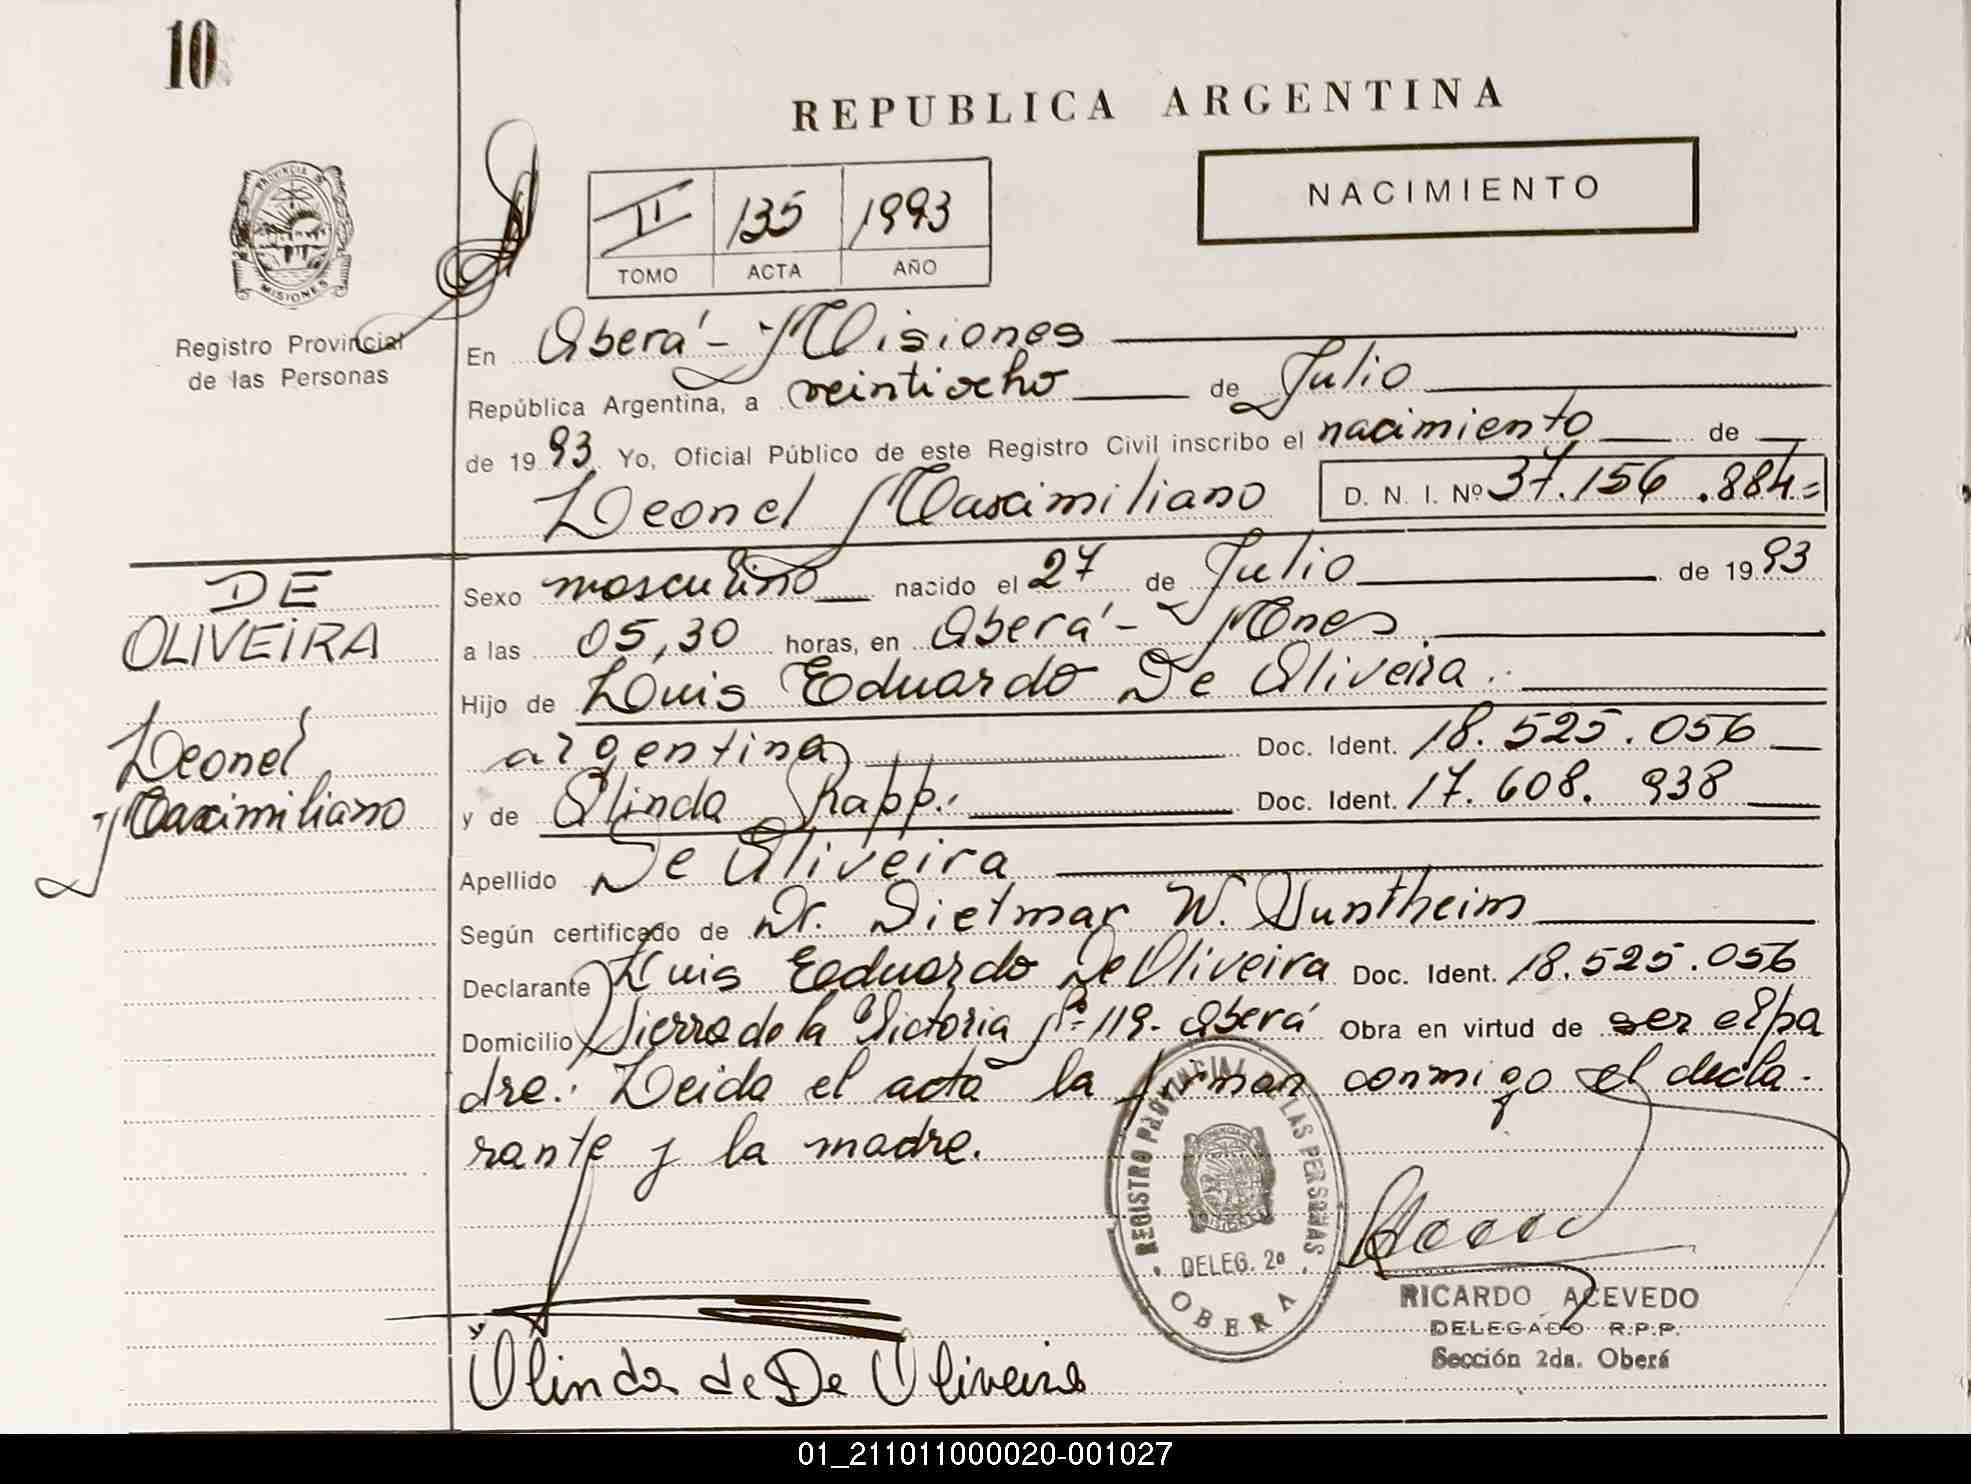 10
REPUBLICA ARGENTINA
NACIMIENTO
II 135 1993
TOMO ACTA AÑO
PROVINCIA DE MISIONES
Registro Provincial
de las Personas
En Oberá - Misiones
República Argentina, a veintiocho de Julio
de 1993 Yo, Oficial Público de este Registro Civil inscribo el nacimiento de
Leonel Maximiliano D. N. I. Nº 37.156.884=
DE
OLIVEIRA
Leonel
Maximiliano
Sexo masculino nacido el 27 de Julio de 1993
a las 05,30 horas, en Oberá - Mnes
Hijo de Luis Eduardo De Oliveira
argentina Doc. Ident. 18.525.056
y de Olinda Rapp. Doc. Ident. 17.608.938
Apellido De Oliveira
Según certificado de Dr. Dietmar W.
Declarante Luis Eduardo De Oliveira Doc. Ident. 18.525.056
Domicilio Sierra de la Victoria Nº 119. Oberá Obra en virtud de ser el pa
dre.: Leida el acta la firman conmigo el decla-
rante y la madre.
REGISTRO PROVINCIAL DE LAS PERSONAS
DELEG. 2º
OBERA
RICARDO ACEVEDO
DELEGADO R.P.P.
Sección 2da. Oberá
Olinda de De Oliveira
01_211011000020-001027